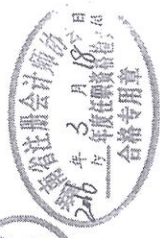 省注册会计师协会
2016年3月18日
年度任职资格检查
合格专用章